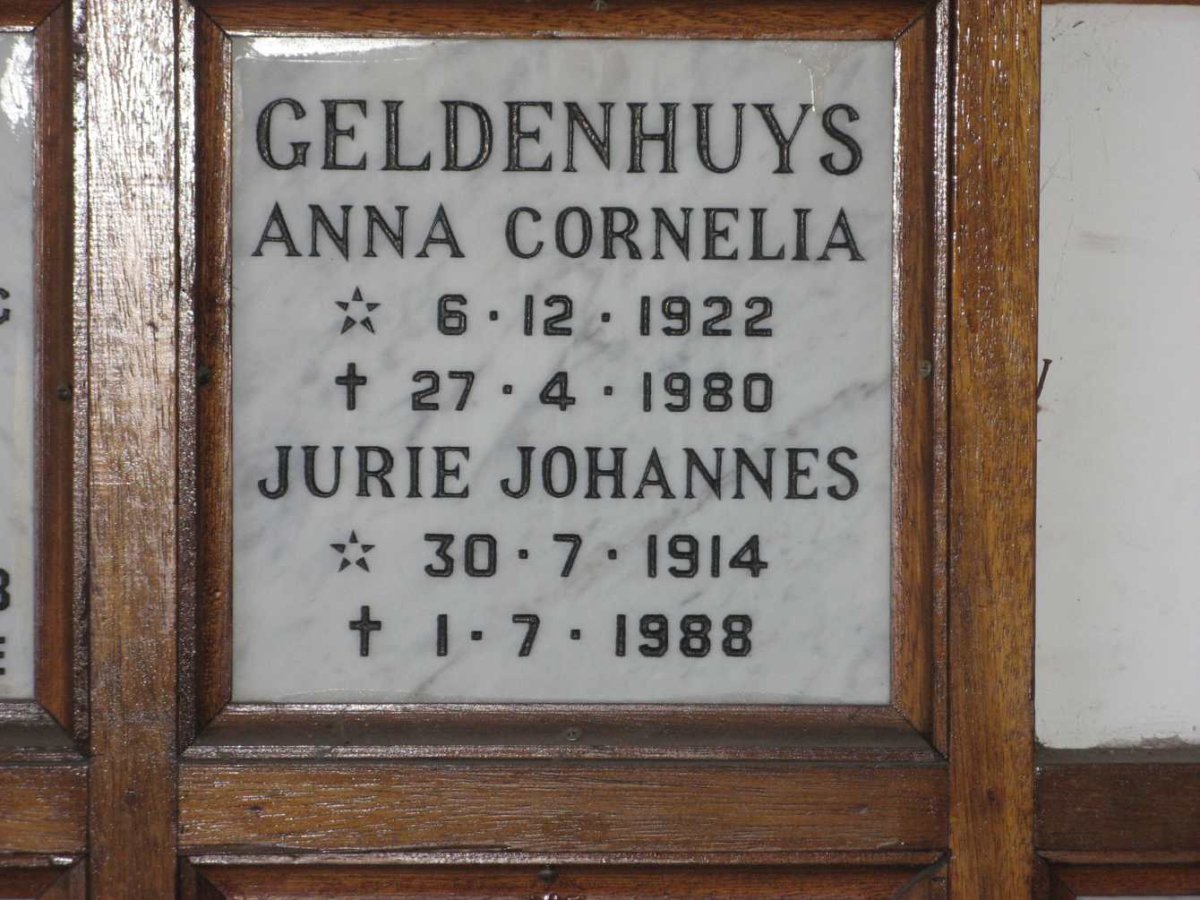 GELDENHUYS
ANNA CORNELIA
☆ 6 · 12 · 1922
✝ 27 · 4 · 1980
JURIE JOHANNES
☆ 30 · 7 · 1914
✝ 1 · 7 · 1988